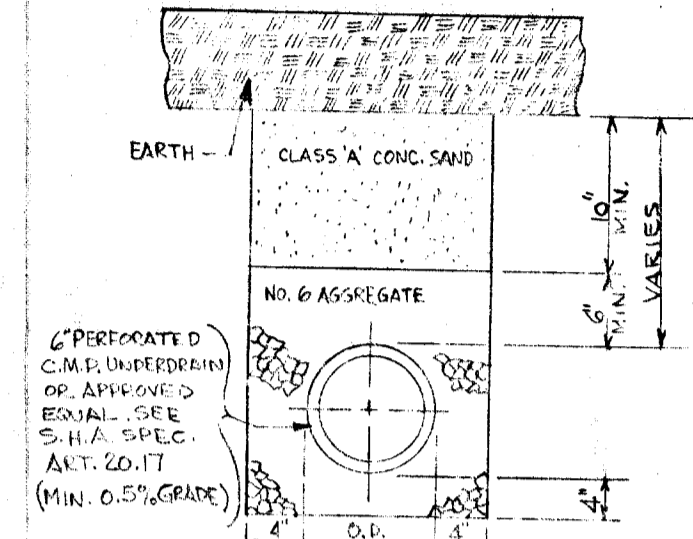 EARTH
CLASS 'A' CONC. SAND
10" MIN.
VARIES
NO. 6 AGGREGATE
6" MIN.
6" PERFORATED
C.M.P. UNDERDRAIN
OR APPROVED
EQUAL. SEE
S.H.A. SPEC.
ART. 20.17
(MIN. 0.5% GRADE)
4"
4" O.D. 4"